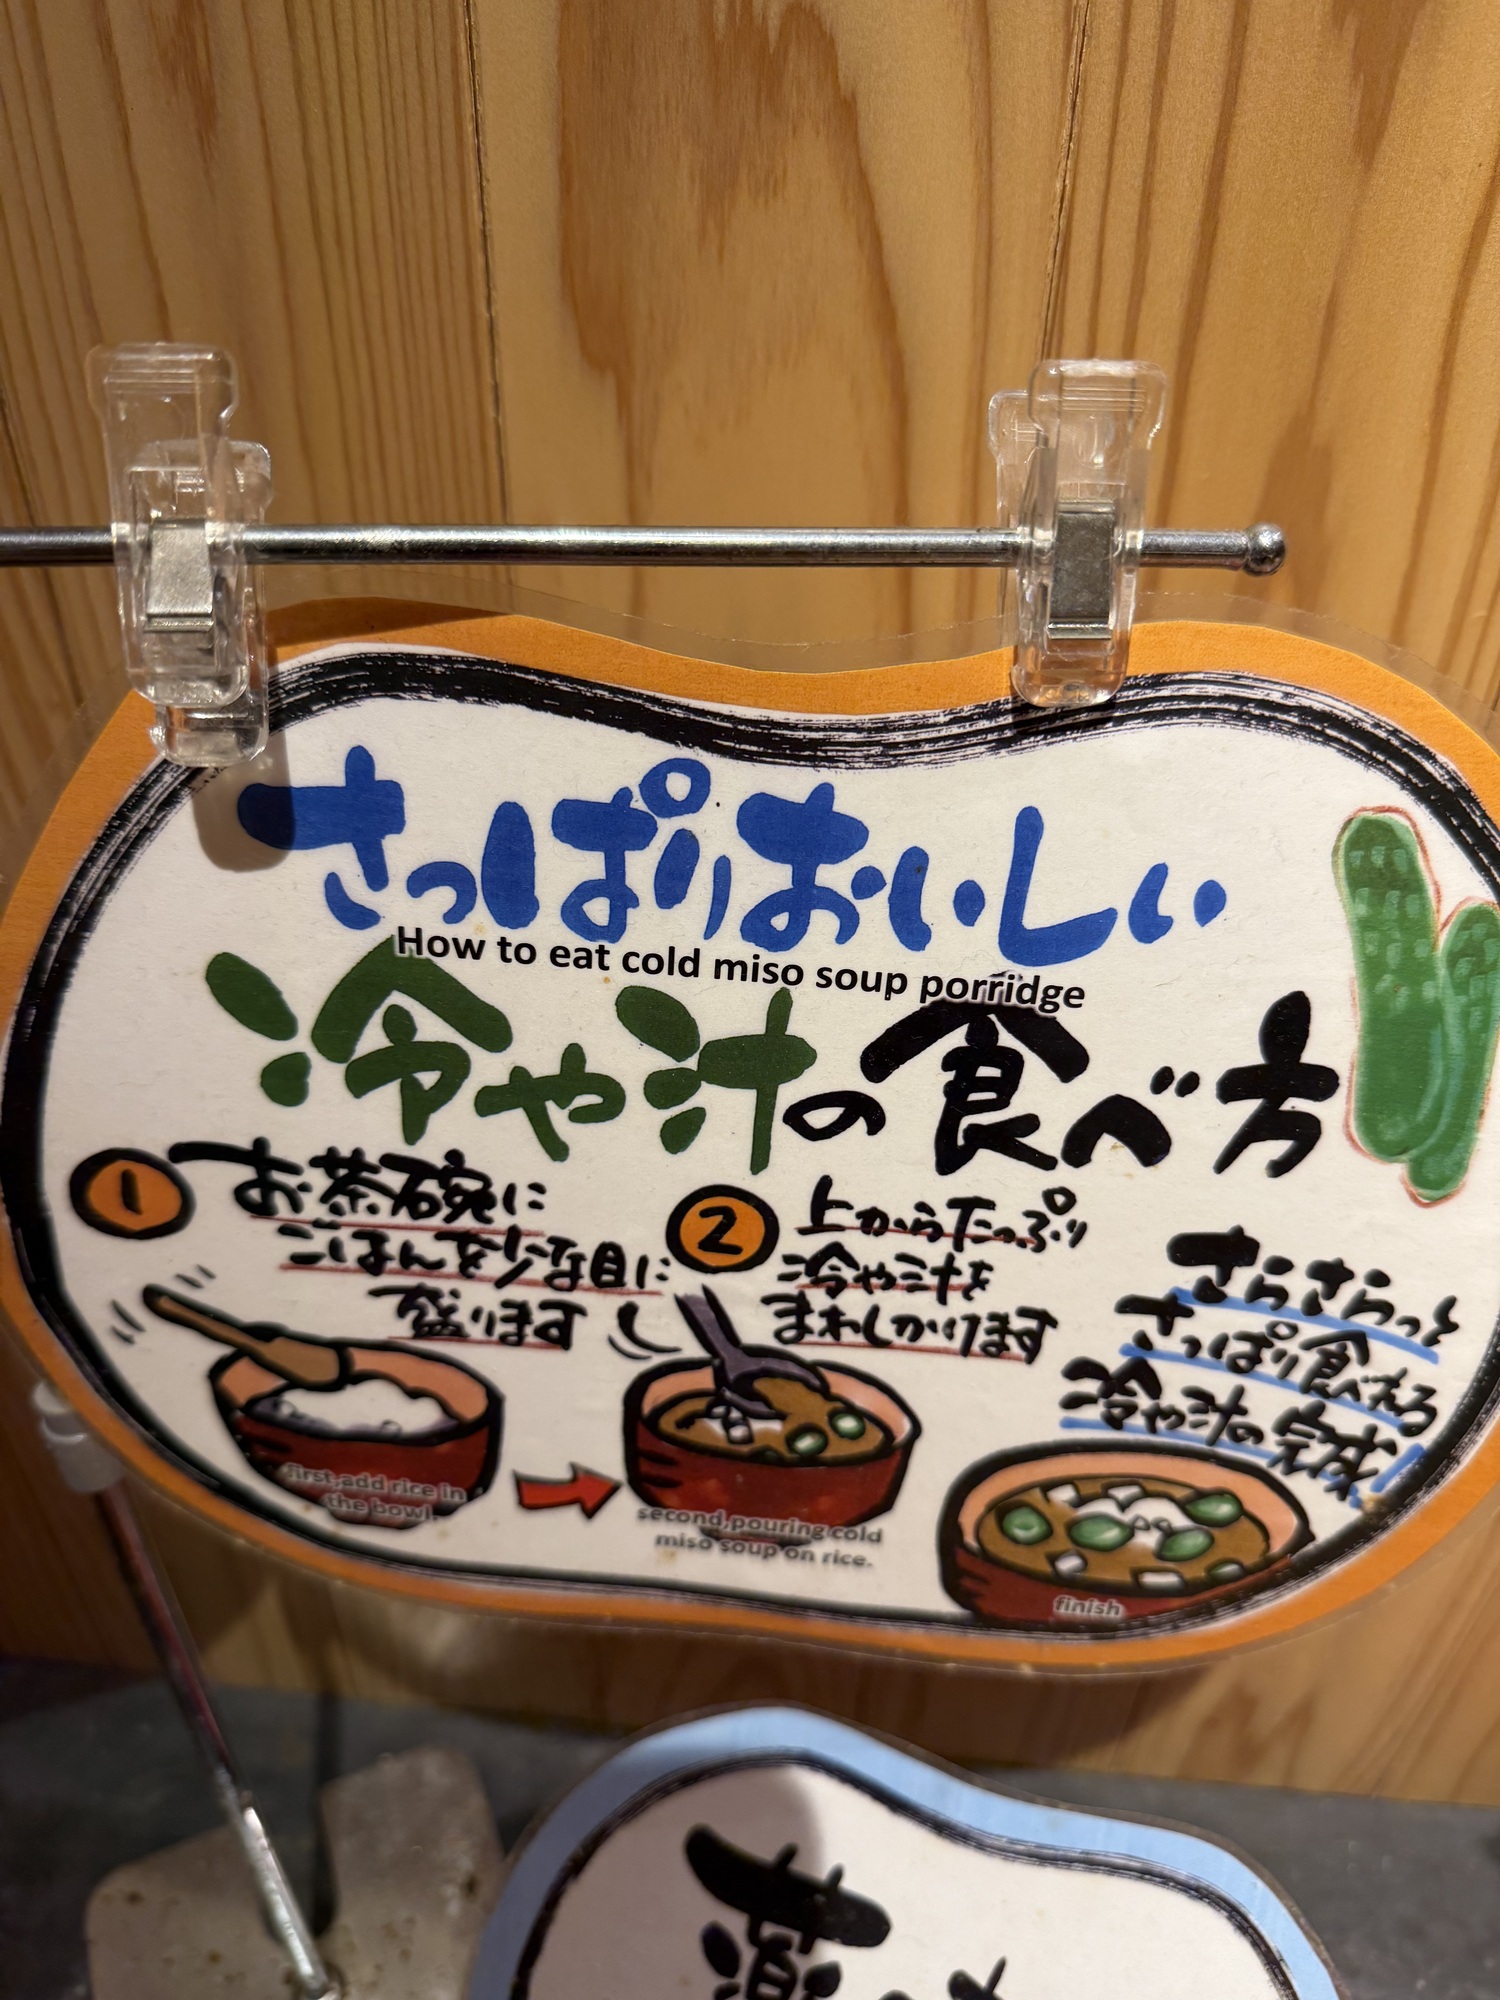 さっぱりおいしい
How to eat cold miso soup porridge
冷や汁の食べ方
1 お茶碗に
ごはんを少な目に
盛ります
first,add rice in
the bowl.
2 上からたっぷり
冷や汁を
まわしかけます
second,pouring cold
miso soup on rice.
さらさらっと
さっぱり食べれる
冷や汁の完成
finish
薬